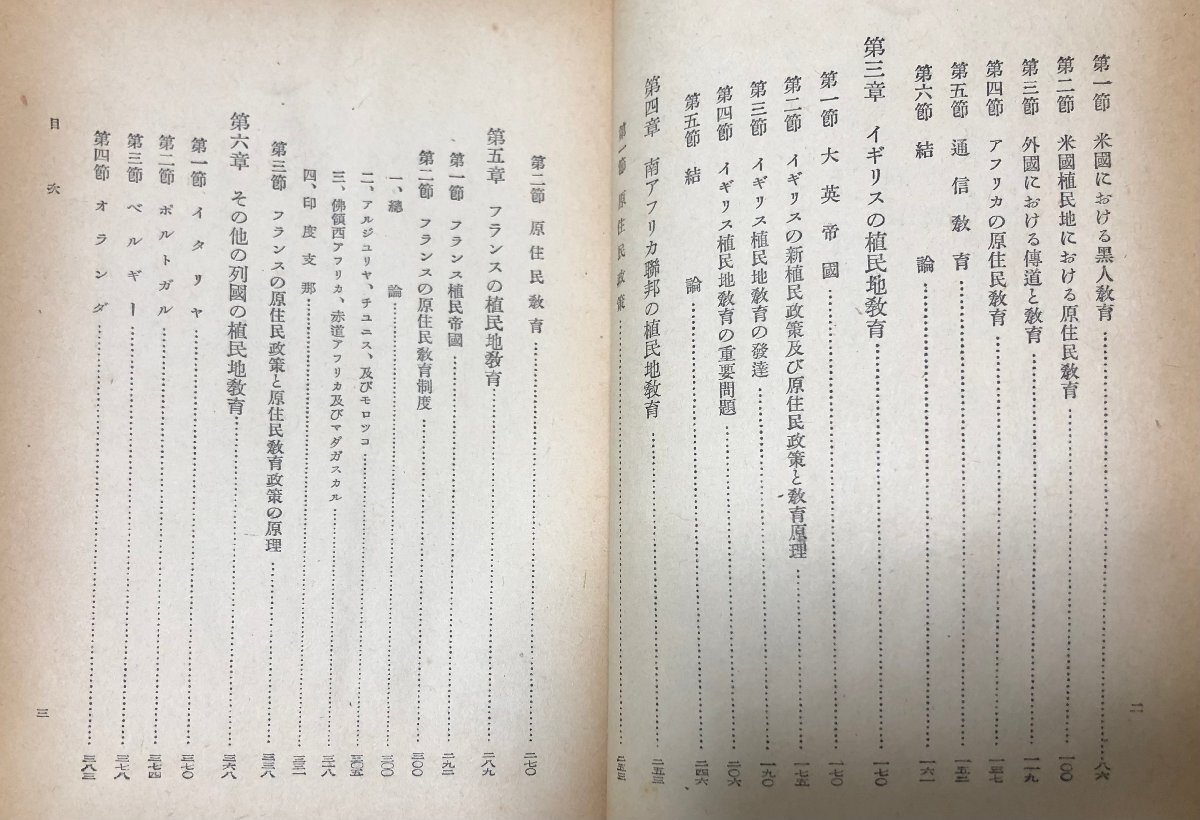 第一節 米國における黑人敎育……八六
第二節 米國植民地における原住民敎育……一〇〇
第三節 外國における傳道と敎育……一一九
第四節 アフリカの原住民敎育……一三七
第五節 通信敎育……一五三
第六節 結論……一六一
第三章 イギリスの植民地敎育……一七〇
第一節 大英帝國……一七〇
第二節 イギリスの新植民政策及び原住民政策と敎育原理……一七五
第三節 イギリス植民地敎育の發達……一九〇
第四節 イギリス植民地敎育の重要問題……二〇六
第五節 結論……二四六
第四章 南アフリカ聯邦の植民地敎育……二五三
第一節 原住民政策……二五三
二
第二節 原住民敎育……二七〇
第五章 フランスの植民地敎育……二八九
第一節 フランス植民帝國……二九二
第二節 フランスの原住民敎育制度……三〇〇
一、總論……三〇〇
二、アルジュリヤ、チュニス、及びモロツコ……三〇五
三、佛領西アフリカ、赤道アフリカ及びマダガスカル……三一八
四、印度支那……三三一
第三節 フランスの原住民政策と原住民敎育政策の原理……三三八
第六章 その他の列國の植民地敎育……三六八
第一節 イタリヤ……三七〇
第二節 ポルトガル……三七四
第三節 ベルギー……三七八
第四節 オランダ……三八三
目次
三